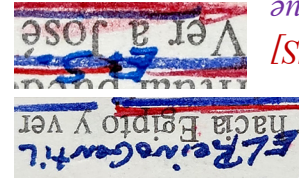 Ver a José
Es-
hacia Egipto y ver
EL Reino Gentil
ən
[S